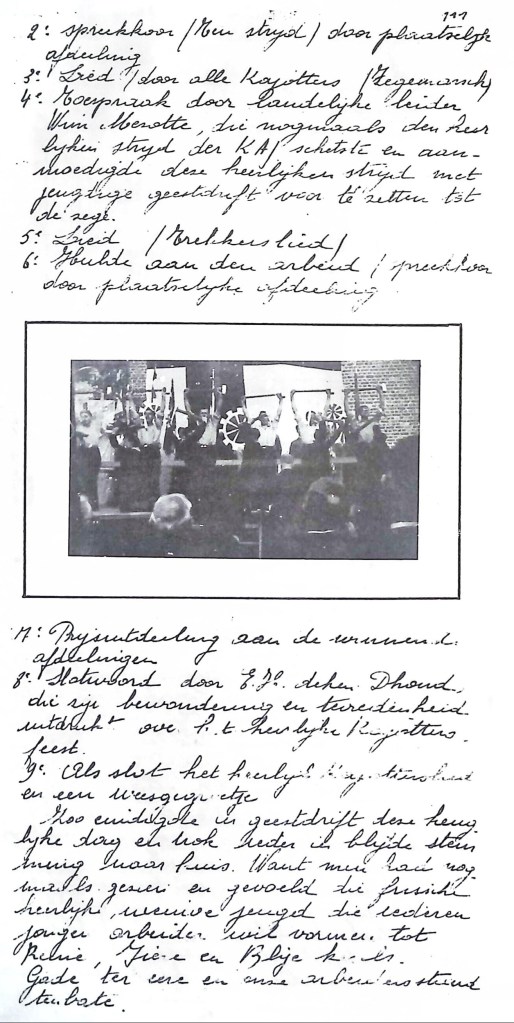 111
2e spreekkoor (Een strijd) door plaatselijke
afdeeling
3e Lied (door alle Kajotters (Zegemarsch)
4e Toespraak door landelijke leider
Wim Mesotte, die nogmaals den heer
lijken strijd der KAJ schetste en aan-
moedigde dese heerlijken strijd met
jeugdige geestdrift voor te zetten tot
de zege.
5e Lied (Trekkerslied)
6e Hulde aan den arbeid (spreekkoor
door plaatselijke afdeeling
7e Prijsuitdeeling aan de winnend.
afdeelingen
8e Slotwoord door E.H. deken Dhond.
die zijn bewondering en tevredenheid
uitdrukt over het heerlijke Kajotters-
feest.
9e Als slot het heerlijk
en een weesgegroetje
Zoo eindigde in geestdrift dese heug
lijke dag en trok ieder in blijde stem
ming naar huis. Want men had nog
maals gezien en gevoeld die frissche
heerlijke nieuwe jeugd die iederen
jongen arbeider wil vormen tot
Reine, Fiere en Blije kerels.
Gode ter eere en onze arbeidersstand
ten bate.